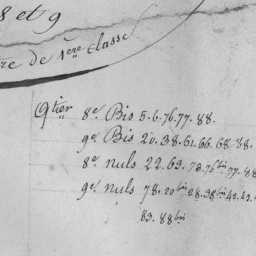 8 et 9
re de 1ere classe
Qtier 8e Bis 5.6.76.77.88.
9e Bis 20.38.61.66.68.78.
8e nuls 22.69.70.76bis 77.88
9e nuls 78.20bis 28.38bis 42.42.
83.88bis